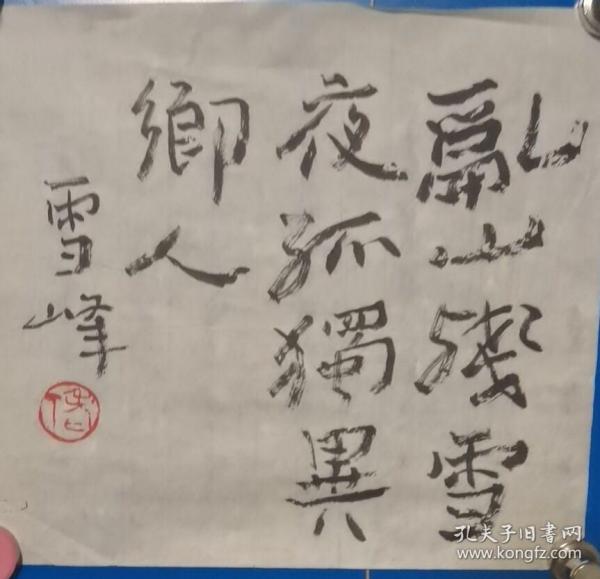 亂山殘雪
夜孤獨異
鄉人
雪峰
孔夫子旧书网
www.kongfz.com